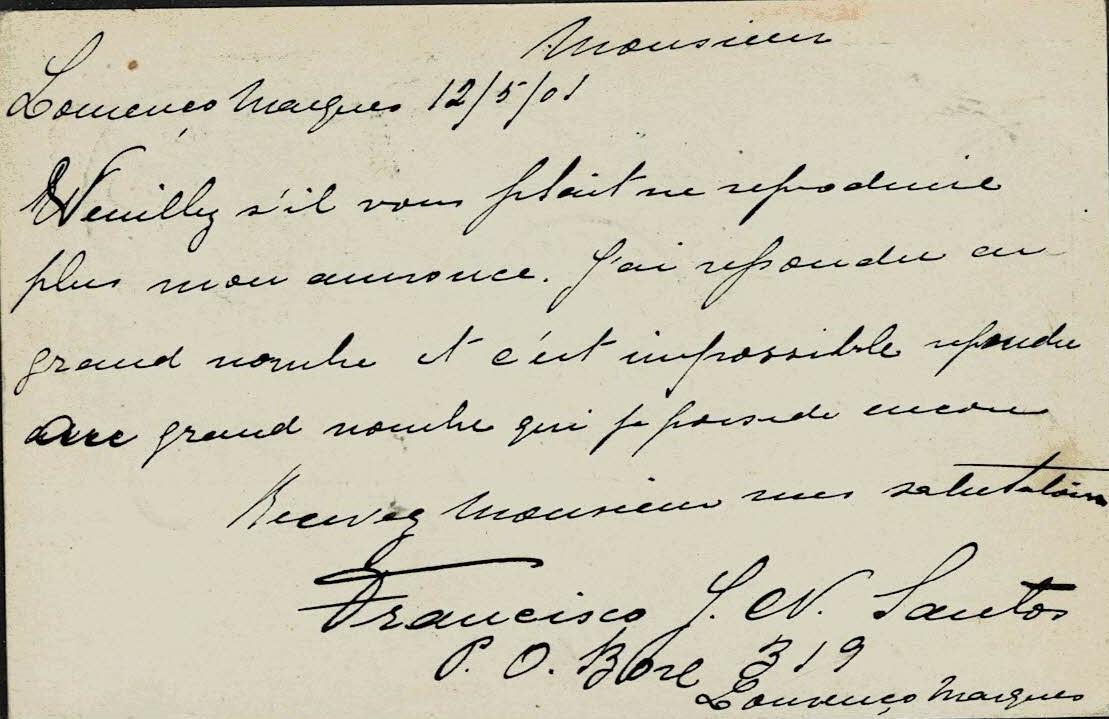 Monsieur
Lourenço Marques 12/5/01
Veuillez s'il vous plait ne reproduire
plus mon annonce. J'ai répondu au
grand nombre et c'est impossible repondre
au grand nombre qui je possede encore
Recevez Monsieur mes salutations
Francisco J. N. Santos
P. O. Box 319
Lourenço Marques